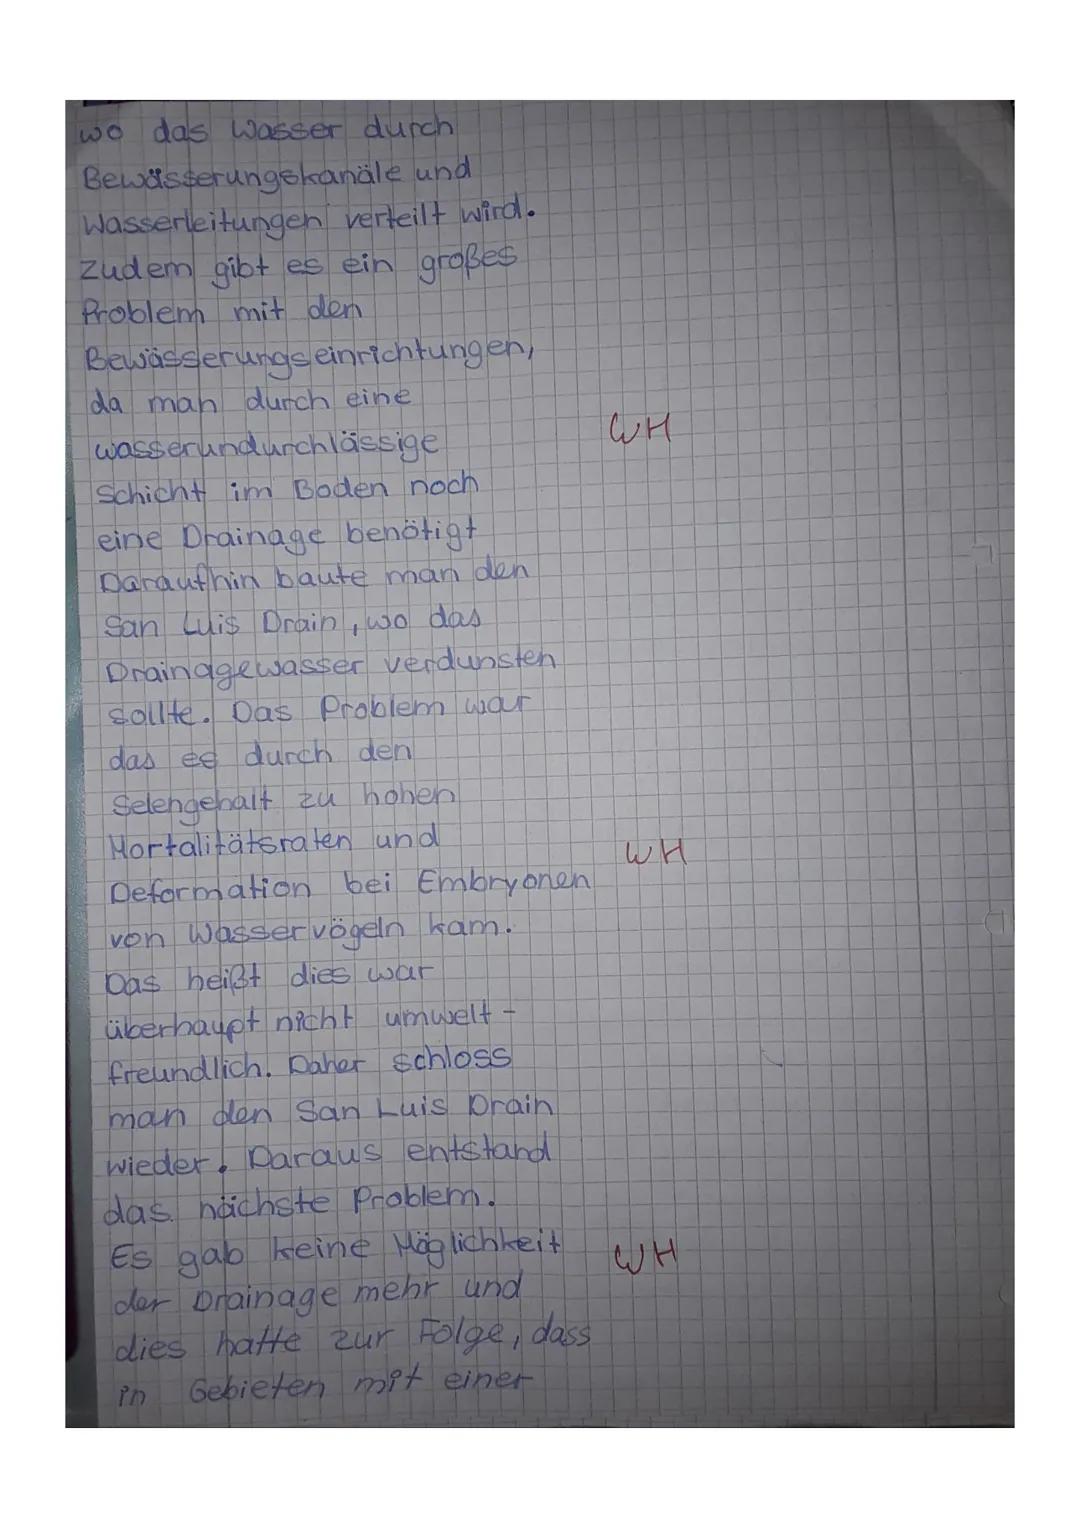 wo das Wasser durch
Bewässerungskanäle und
Wasserleitungen verteilt wird.
Zudem gibt es ein großes
Problem mit den
Bewässerungseinrichtungen,
da man durch eine
wasserundurchlässige WH
Schicht im Boden noch
eine Drainage benötigt
Daraufhin baute man den
San Luis Drain, wo das
Drainagewasser verdunsten
sollte. Das Problem war
das es durch den
Selengehalt zu hohen
Mortalitätsraten und WH
Deformation bei Embryonen
von Wasservögeln kam.
Das heißt dies war
überhaupt nicht umwelt-
freundlich. Daher schloss
man den San Luis Drain
wieder. Daraus entstand
das nächste Problem.
Es gab keine Möglichkeit WH
der Drainage mehr und
dies hatte zur Folge, dass
in Gebieten mit einer